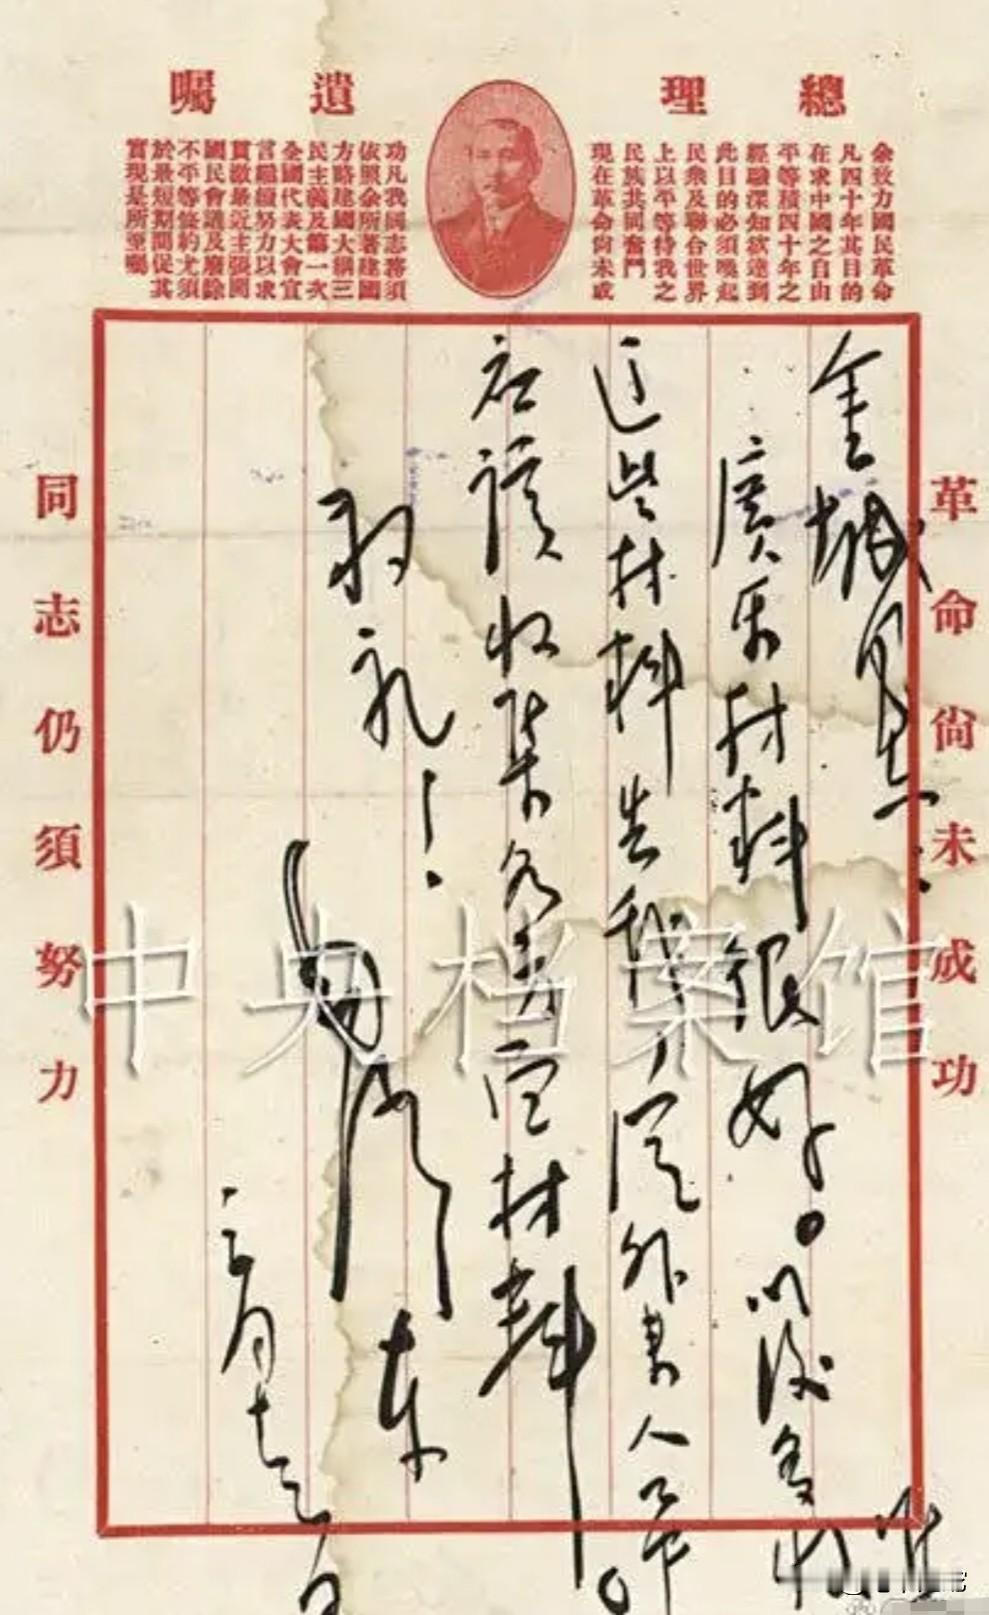 總理
遺囑
余致力國民革命
凡四十年其目的
在求中國之自由
平等積四十年之
經驗深知欲達到
此目的必須喚起
民衆及聯合世界
上以平等待我之
民族共同奮鬥
現在革命尙未成
功凡我同志務須
依照余所著建國
方略建國大綱三
民主義及第一次
全國代表大會宣
言繼續努力以求
貫徹最近主張開
國民會議及廢除
不平等條約尤須
於最短期間促其
實現是所至囑
革命尙未成功
同志仍須努力
金城同志：
材料很好。以後多收
這些材料告我，
應該收集各方面材料。
敬禮！
毛澤東
三月十三日
中央档案馆